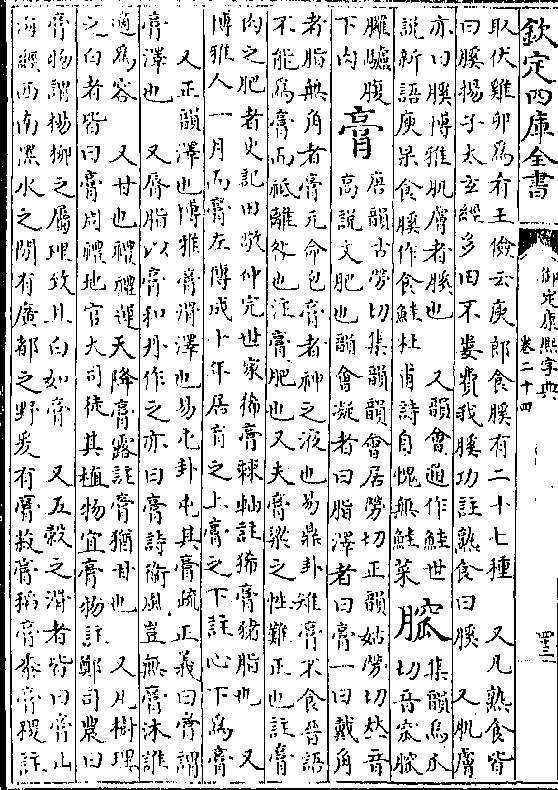 欽定四庫全書
御定康熙字典
卷二十四
取伏雞卵爲肴王儉云庾郎食膎有二十七種 又凡熟食皆
曰膎揚子太玄經多田不婁費我膎功註熟食曰膎 又肌膚
亦曰膎博雅肌膚者膎也 又韻會通作鮭世
說新語庾杲食膎作食鮭杜甫詩自愧無鮭菜
集韻烏瓜
切音窊
驢腹
下肉
膏
唐韻古勞切集韻韻會居勞切正韻姑勞切𠀤音
高說文肥也韻會凝者曰脂澤者曰膏一曰戴角
者脂無角者膏元命包膏者神之液也易鼎卦雉膏不食晉語
不能爲膏而祗離咎也注膏肥也又夫膏粱之性難正也註膏
肉之肥者史記田敬仲完世家狶膏棘軸註狶膏猪脂也 又
博雅人一月而膏左傳成十年居肓之上膏之下註心下爲膏
又正韻澤也博雅膏滑澤也易屯卦屯其膏疏正義曰膏謂
膏澤也 又脣脂以膏和丹作之亦曰膏詩衛風豈無膏沐誰
適爲容 又甘也禮禮運天降膏露註膏猶甘也 又凡樹理
之白者皆曰膏周禮地官大司徒其植物宜膏物註鄭司農曰
膏物謂楊柳之屬理致且白如膏 又五穀之滑者皆曰膏山
海經西南黑水之閒有廣都之野爰有膏菽膏稻膏黍膏稷註